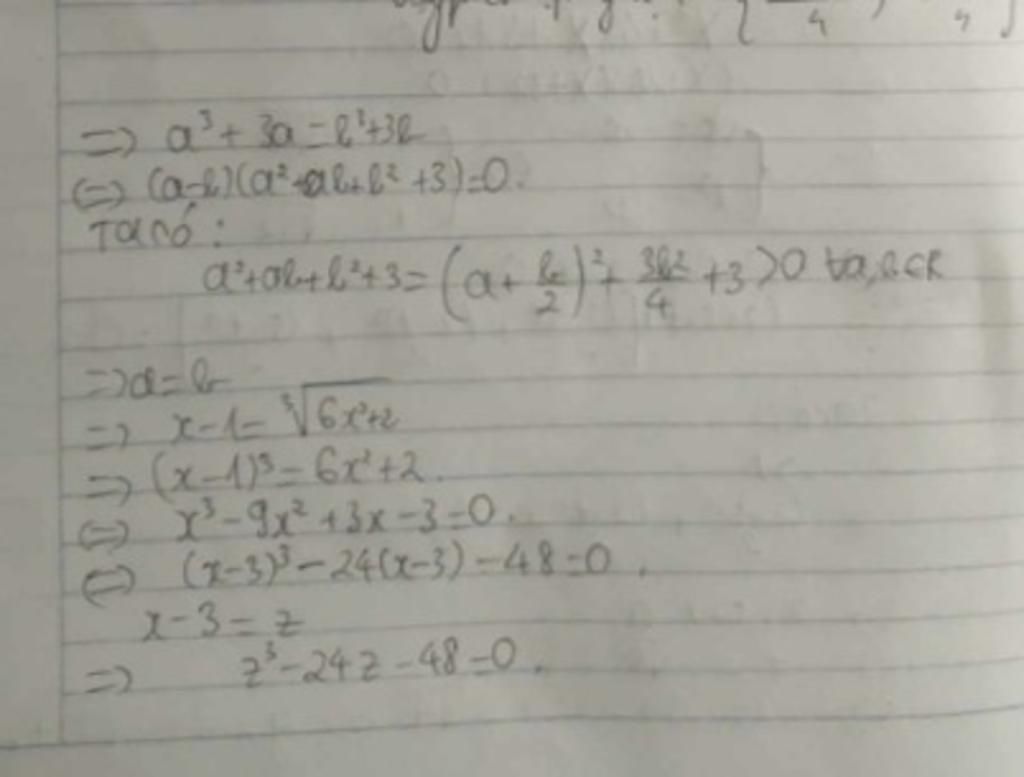 => a³ + 3a = b³ + 3b
<=> (a-b)(a² + ab + b² + 3) = 0.
Ta có :
a² + ab + b² + 3 = (a + b/2)² + 3b²/4 + 3 > 0 ∀a, b ∈ R
=> a = b
=> x - 1 = ∛(6x² + 2)
=> (x - 1)³ = 6x² + 2.
<=> x³ - 9x² + 3x - 3 = 0.
<=> (x - 3)³ - 24(x - 3) - 48 = 0.
x - 3 = z
=> z³ - 24z - 48 = 0.